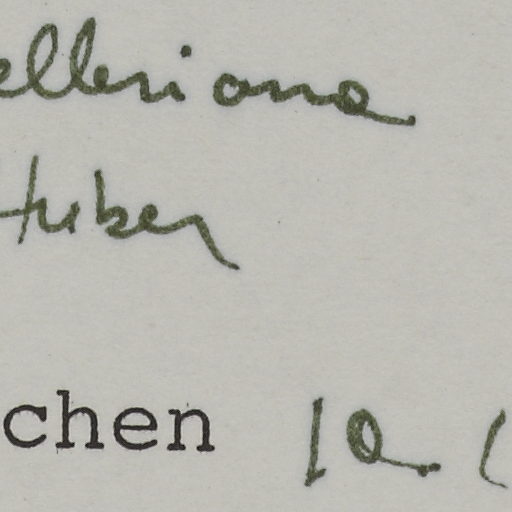 elleriana
Huber
chen 10. (